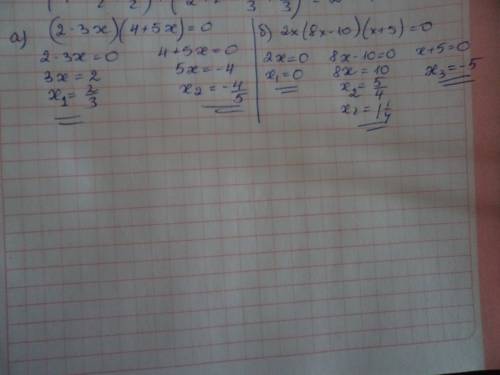 а) (2-3x)(4+5x)=0
2-3x=0 4+5x=0
3x=2 5x=-4
x₁=2/3 x₂=-4/5
б) 2x(8x-10)(x+5)=0
2x=0 8x-10=0 x+5=0
x₁=0 8x=10 x₃=-5
x₂=5/4
x₂=1 1/4